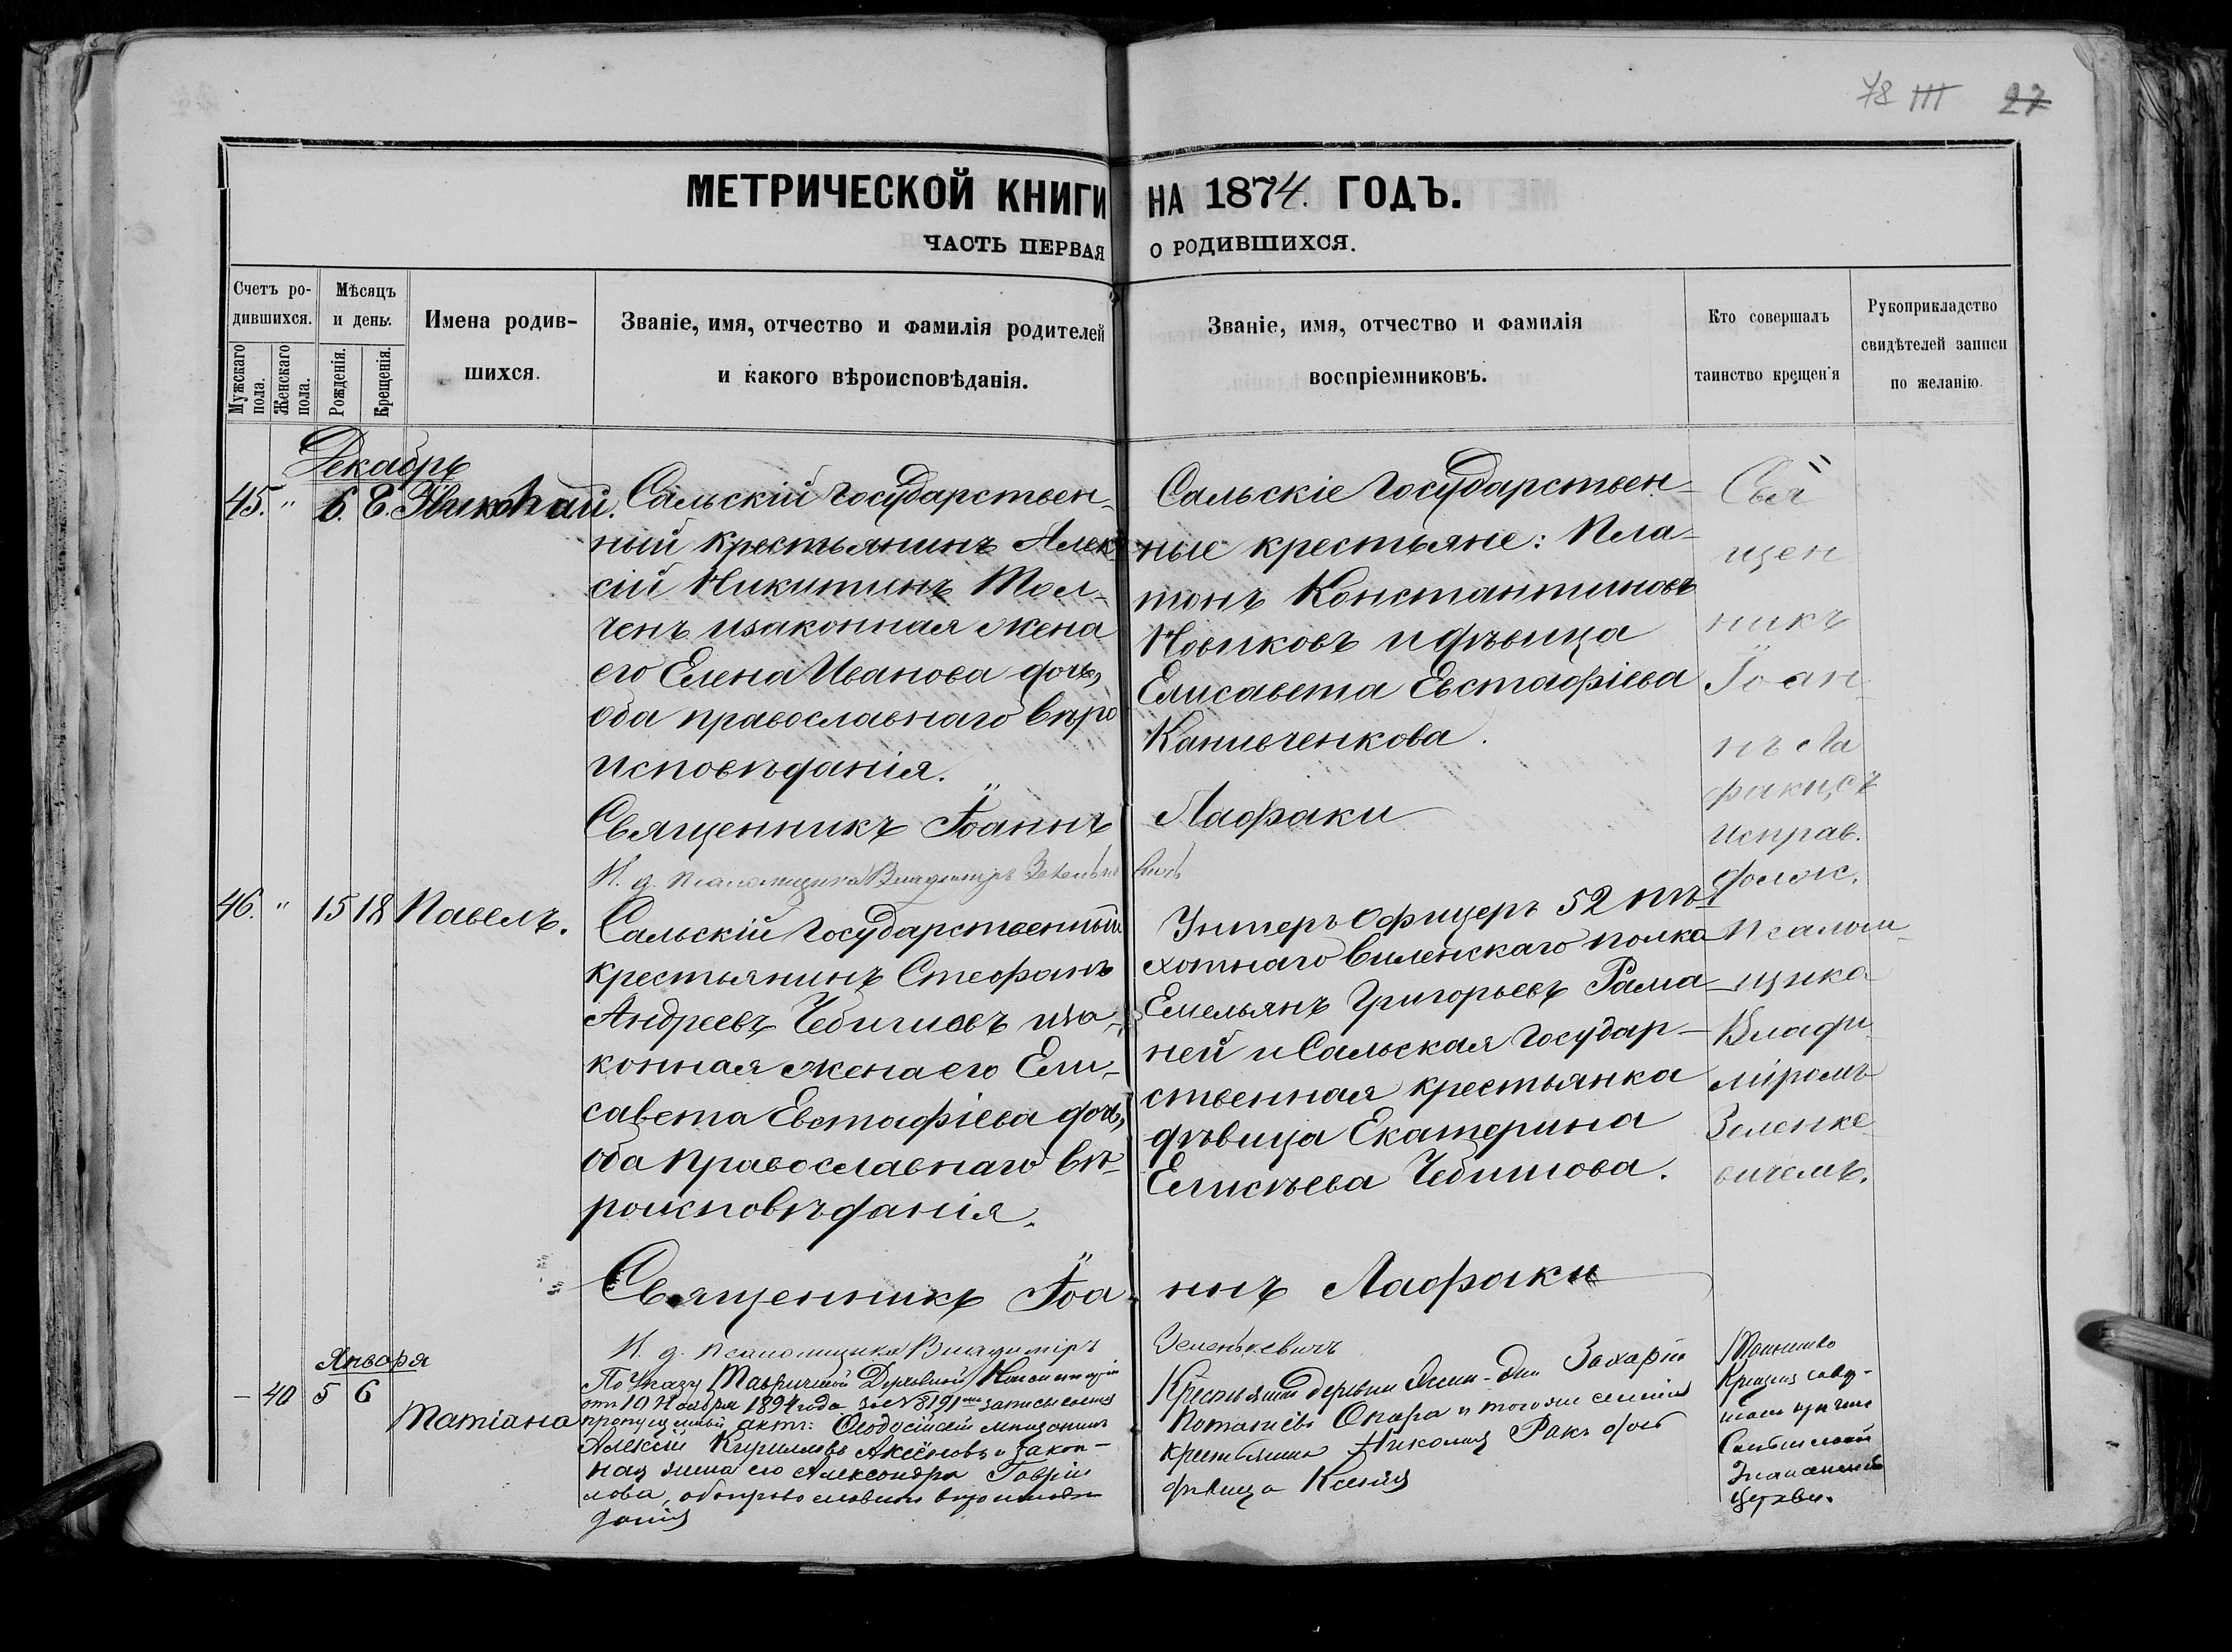 78 III 27
МЕТРИЧЕСКОЙ КНИГИ НА 1874. ГОДЪ.
ЧАСТЬ ПЕРВАЯ О РОДИВШИХСЯ.
Счетъ ро-
дившихся.
Мужскаго пола.
Женскаго пола.
Мѣсяцъ
и день.
Рожденія.
Крещенія.
Имена родив-
шихся.
Званіе, имя, отчество и фамилія родителей
и какого вѣроисповѣданія.
Званіе, имя, отчество и фамилія
воспріемниковъ.
Кто совершалъ
таинство крещенія
Рукоприкладство
свидѣтелей записи
по желанію.
Декабрь
45. " 6. 8. Николай.
Сальскій Государствен-
ный крестьянинъ Алек
сій Никитинъ Тол-
ченъ и законная жена
его Елена Иванова дочь,
оба православнаго вѣро
исповѣданія.
Священникъ Іоаннъ
И. д. псаломщика Владимиръ
Сальскіе Государствен-
ные крестьяне: Пла-
тонъ Константиновъ
Новиковъ и дѣвица
Елисавета Евстафіева
Канивченкова.
Лафаки
Свя
щен
никъ
Іоан
нъ Ла
факи съ
исправ.
долж.
Псалом-
щика
Влади
міромъ
Зеленке
вичемъ.
46. " 15 18 Павелъ.
Сальскій Государственный
крестьянинъ Стефанъ
Андреевъ Чебишовъ и за-
конная жена его Ели-
савета Евстафіева дочь,
оба православнаго вѣ-
роисповѣданія.
Священникъ Іоа-
И. д. псаломщика Владиміръ
Унтеръ Офицеръ 52 пѣ-
хотнаго Виленскаго полка
Емельянъ Григорьевъ Рама
ней и Сальская Государ-
ственная крестьянка
дѣвица Екатерина
Елисѣева Чебишова.
ннъ Лафаки
Зеленькевичъ
Января
- 40 5 6
Татіана
По Указу Таврической Духовной Консисторіи
отъ 10 Ноября 1894 года за № 8191
пропущенный актъ: Ѳеодосійскій мѣщанинъ
Алексій Кирилловъ Аксёновъ и закон-
ная жена его Александра Гаврі
лова, оба православнаго вѣроисповѣ
данія
Крестьянинъ деревни Захарій
Потапіевъ Опара и того же селенія
крестьянина Николая Ракъ дочь
дѣвица Ксенія
Таинство
Крещенія
Знаменской
церкви.